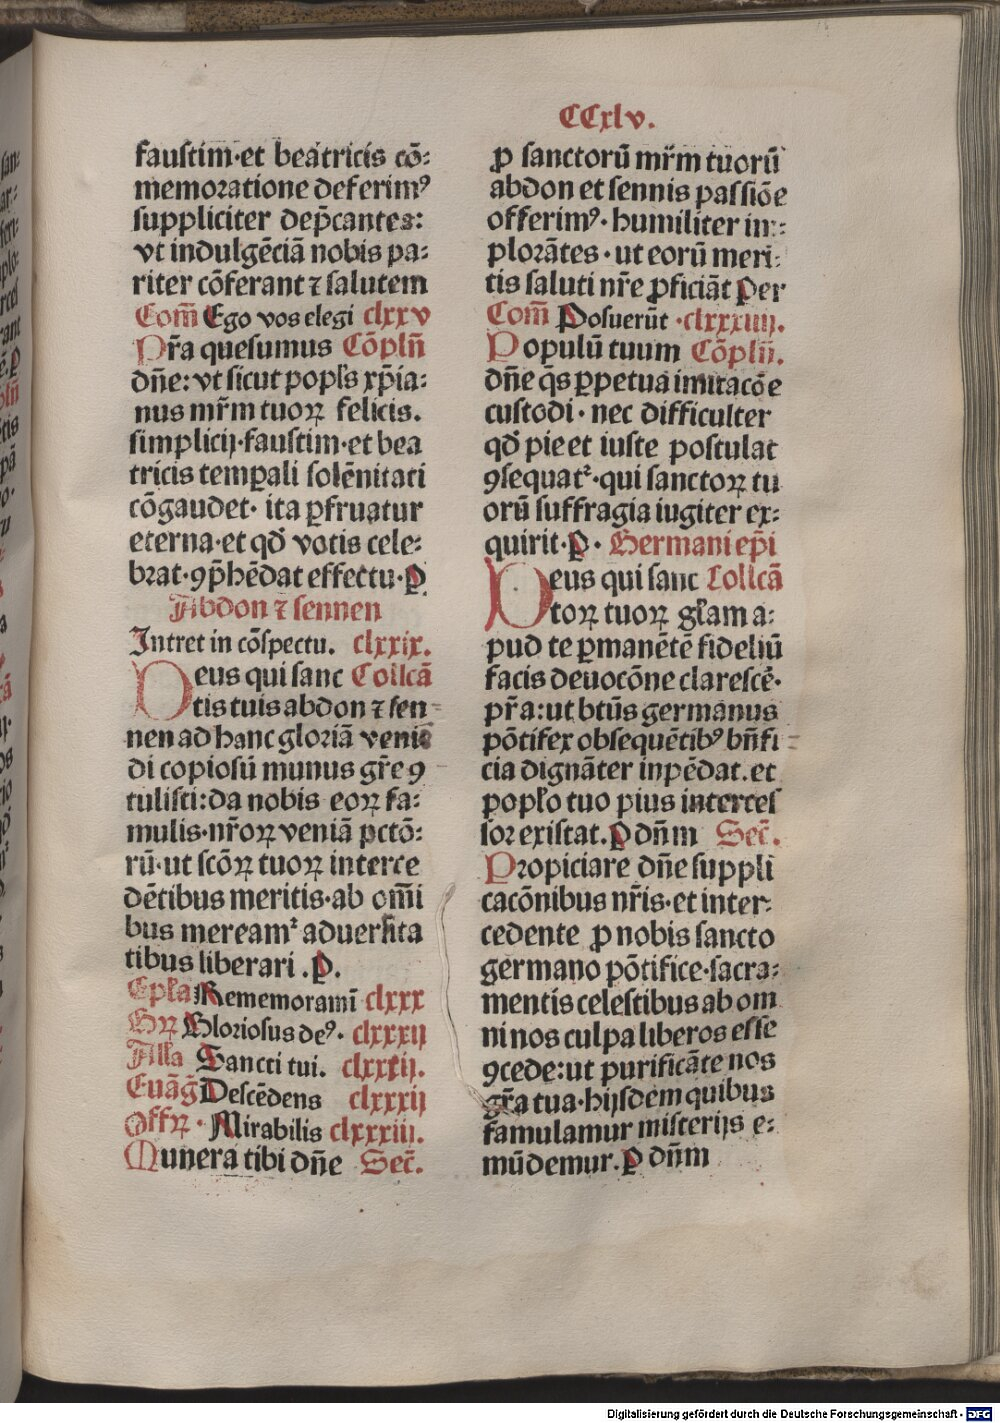 CCxlv.
faustim·et beatricis cō⸗
memoratione deferimꝰ
suppliciter dep̄cantes:
vt indulgēciā nobis pa⸗
riter cōferant ⁊ salutem
Com̄ Ego vos elegi clxxv
Pr̄a quesumus Cōpln̄
dn̄e: vt sicut popl̄s xp̄ia⸗
nus mr̄m tuoꝝ felicis.
simplicij·faustim·et bea
tricis temꝑali solēnitati
cōgaudet· ita ꝑfruatur
eterna·et qđ votis cele⸗
brat·ꝯp̄hēdat effectu·ꝑ
Abdon ⁊ sennen
Intret in cōspectu. clxxix.
Deus qui sanc Collcā
tis tuis abdon ⁊ sen⸗
nen ad hanc gloriā veni⸗
di copiosū munus gr̄e ꝯ
tulisti: da nobis eoꝝ fa⸗
mulis·nr̄oꝝ veniā pctō⸗
rū·ut scōꝝ tuoꝝ interce
dētibus meritis·ab om̄i
bus mereamᷣ aduersita
tibus liberari .ꝑ.
Epl̄a Rememoramī clxxx
Gꝝ Gloriosus deꝰ. clxxxij
Alla Sancti tui. clxxxij.
Euāg̃ Descēdens clxxxij
Offꝝ · Mirabilis clxxxiii.
Munera tibi dn̄e Sec̄.
ꝓ sanctorū mr̄m tuorū
abdon et sennis passiōe
offerimꝰ· humiliter im⸗
plorātes · ut eorū meri⸗
tis saluti nr̄e ꝓficiāt Per
Com̄ Posuerūt ·clxxxiiij.
Populū tuum Cōplij.
dn̄e q̄s ꝑpetua imitacōe
custodi · nec difficulter
qđ pie et iuste postulat
ꝯsequatᷣ·qui sanctoꝝ tu
orū suffragia iugiter ex⸗
quirit·ꝑ · Germani ep̄i
Deus qui sanc Collcā
toꝝ tuoꝝ gl̄am a⸗
pud te ꝑmanētē fideliū
facis deuocōne clarescē·
pr̄a: ut btūs germanus
pōtifex obsequētibꝰ bn̄fi⸗
cia dignāter inpēdat. et
popl̄o tuo pius interces
sor existat. ꝑ dn̄m Sec̄.
Propiciare dn̄e suppli
cacōnibus nr̄is·et inter⸗
cedente ꝓ nobis sancto
germano pōtifice·sacra⸗
mentis celestibus ab om
ni nos culpa liberos esse
ꝯcede: ut purificāte nos
gr̄a tua·hijsdem quibus
famulamur misterijs e⸗
mūdemur. ꝑ dn̄m
Digitalisierung gefördert durch die Deutsche Forschungsgemeinschaft - DFG